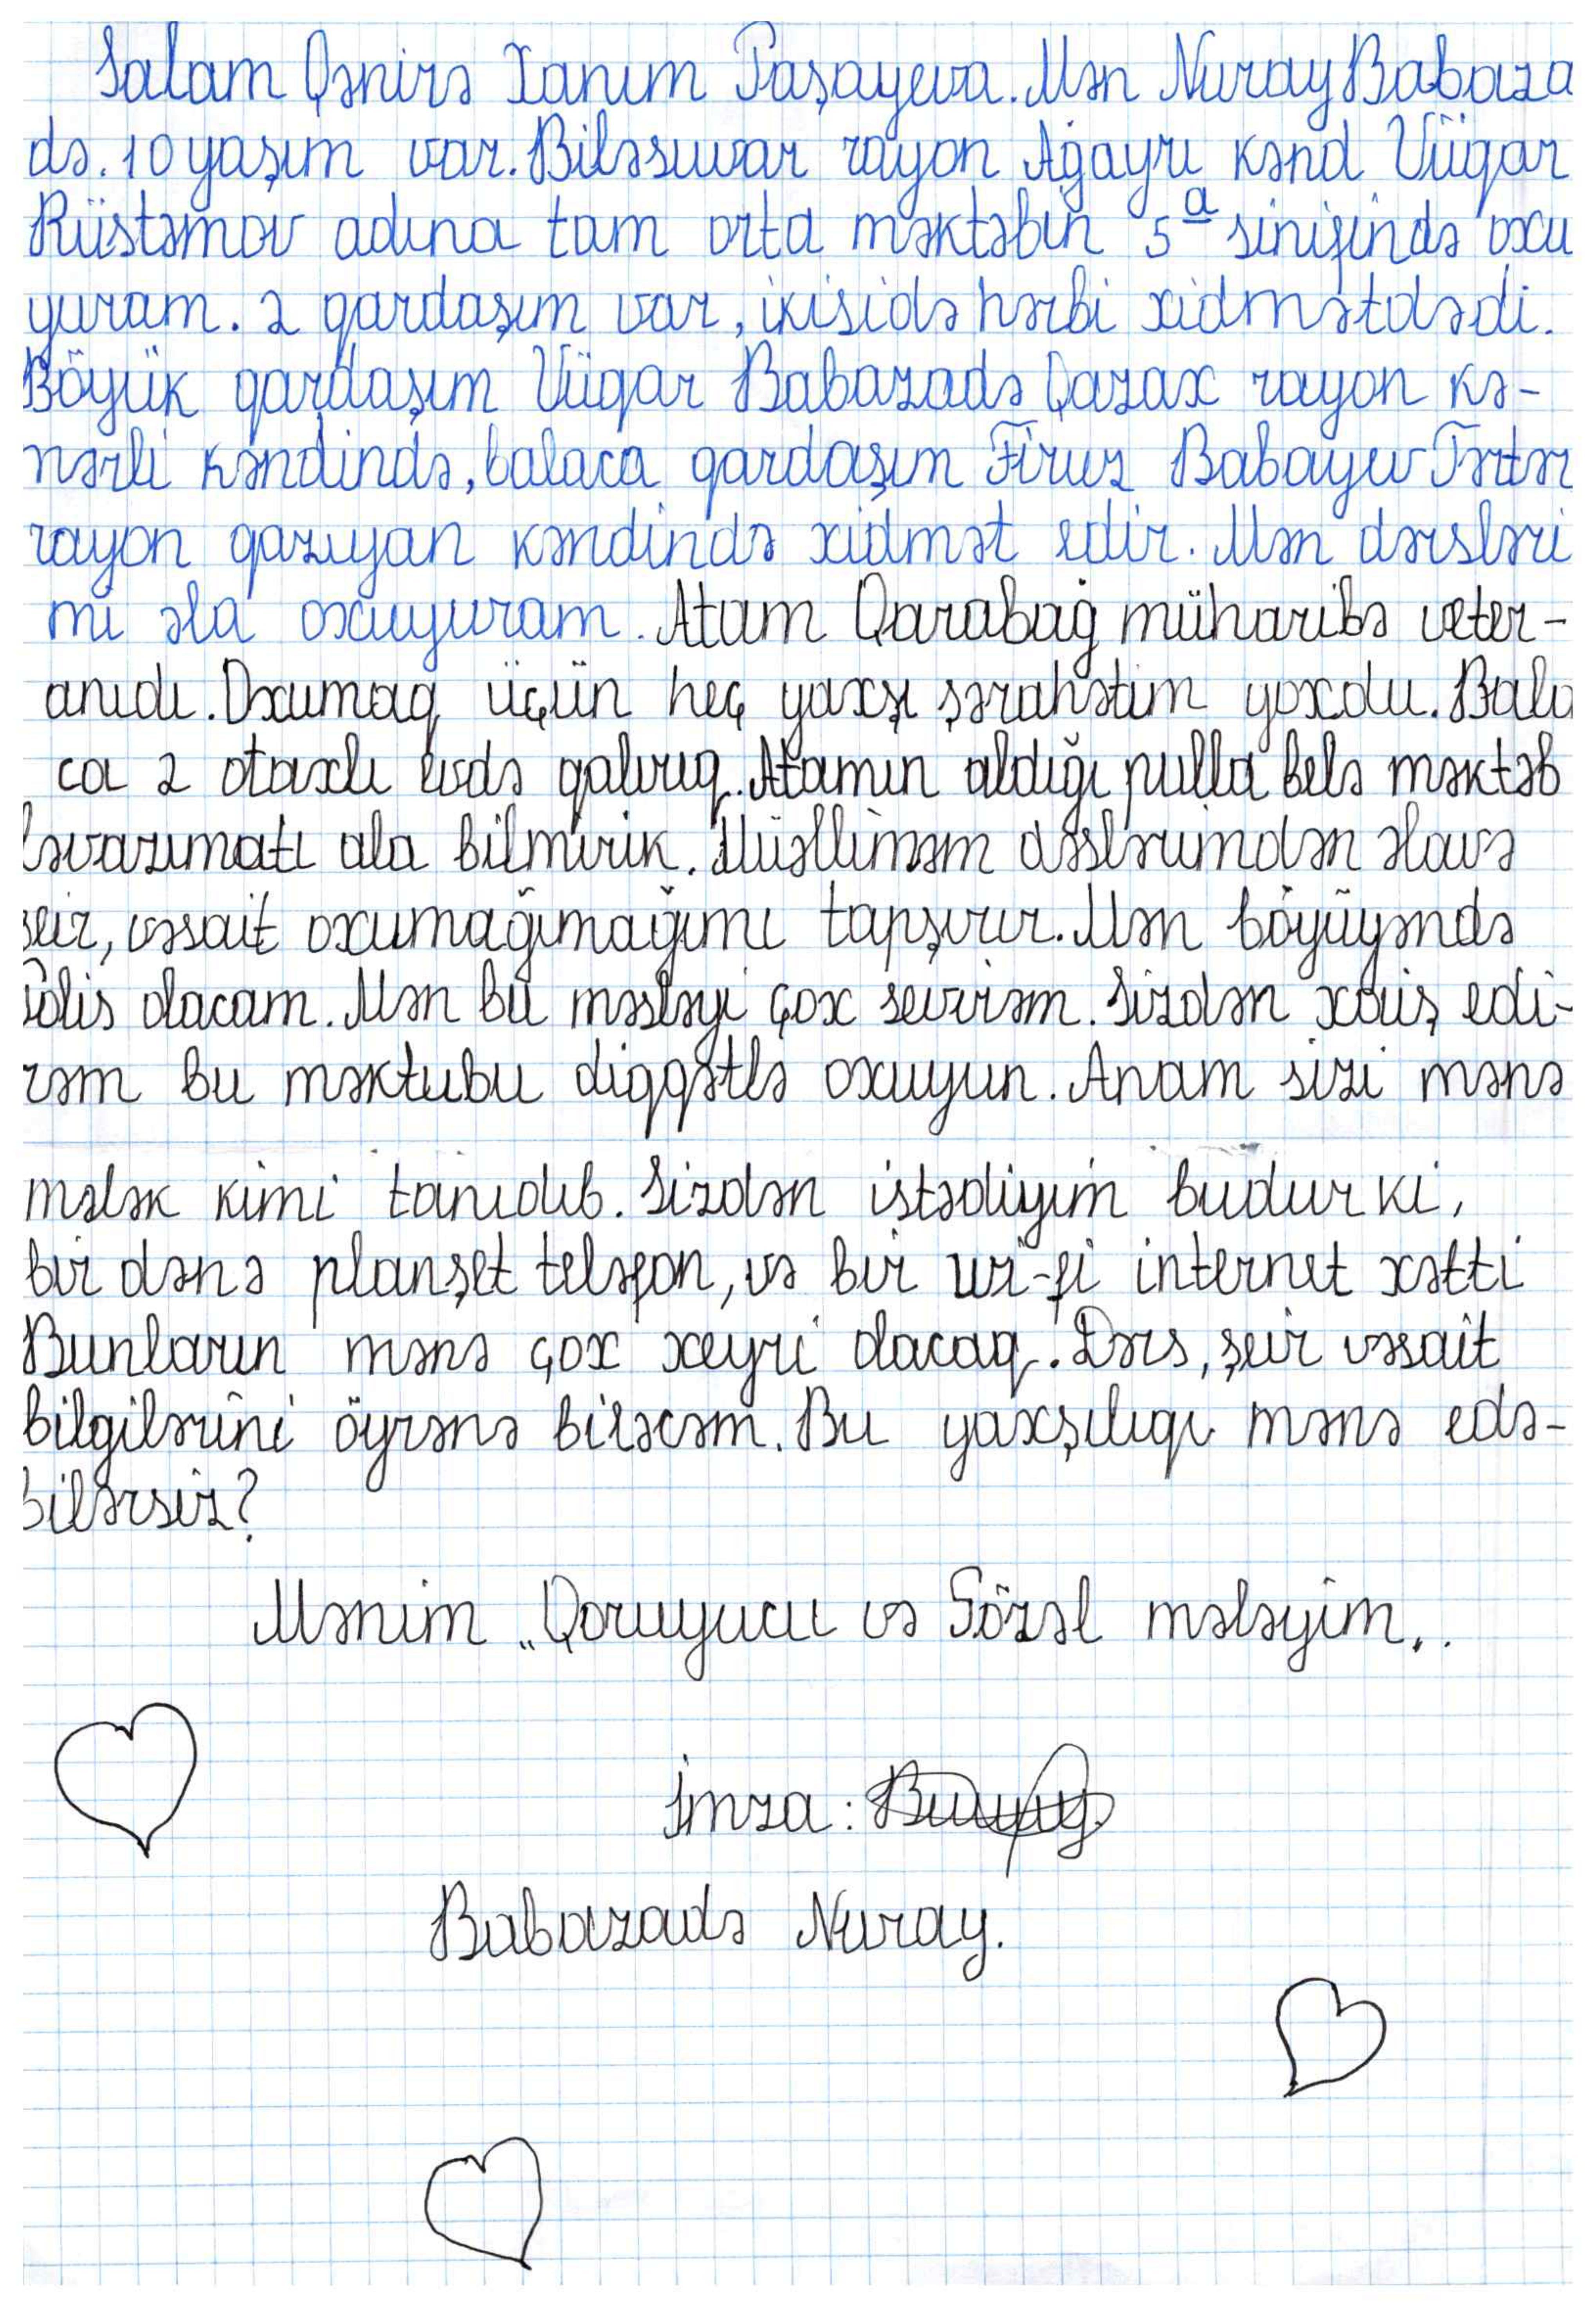 Salam Qənirə Xanım Paşayeva. Mən Nuray Babaza
də. 10 yaşım var. Biləsuvar rayon Ağayrı kənd Vüqar
Rüstəmov adına tam orta məktəbin 5a sinifində oxu
yuram. 2 qardaşım var, ikisidə hərbi xidmətdədi.
Böyük qardaşım Vüqar Babazadə Qazax rayon kə-
nərli kəndində, balaca qardaşım Firuz Babayev Tərtər
rayon qazıyan kəndində xidmət edir. Mən dərsləri
mi əla oxuyuram. Atam Qarabağ müharibə veter-
anıdı. Oxumaq üçün heç yaxşı şərahətim yoxdu. Bala
ca 2 otaxlı evdə qalırıq. Atamın aldığı pulla belə məktəb
ləvazımatı ala bilmirik. Müəlliməm dəslərimdən əlavə
şeir, vəsait oxumağımağımı tapşırır. Mən böyüyəndə
Polis olacam. Mən bu məsləyi çox sevirəm. Sizdən xaiş edi-
rəm bu məktubu diqqətlə oxuyun. Anam sizi mənə
mələk kimi tanıdıb. Sizdən istədiyim budur ki,
bir dənə planşet teləfon, və bir wi-fi internet xətti
Bunların mənə çox xeyri olacaq. Dərs, şeir vəsait
bilgilərini öyrənə biləcəm. Bu yaxşılıqı mənə edə-
bilərsiz?
Mənim "Qoruyucu və Gözəl mələyim..
İmza:
Babazadə Nuray.